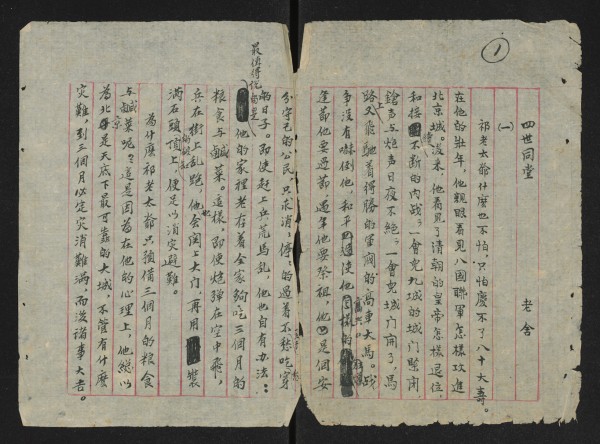 1
四世同堂　老舍
(一)
祁老太爺什麼也不怕,只怕慶不了八十大壽。
在他的壯年,他親眼看見八國聯軍怎樣攻進
北京城。後來,他看見了清朝的皇帝怎樣退位,
和接續不斷的內戰;一會兒九城的城門緊閉
鎗声與炮声日夜不絕;一會兒城門開了,馬
路上又飛馳着得勝的軍閥的高車大馬。战
爭沒有嚇倒他,和平使他高興。
逢節他要過節,過年他要祭祖,他是個安
分守己的公民,只求消消停停的過着不愁吃穿
的日子。即使趕上兵荒馬亂,他也自有办法:
最值得說的是他的家裡老存着全家夠吃三個月的
糧食與鹹菜。這樣,即使炮彈在空中飛,
兵在街上亂跑,他也会関上大門,再用裝
滿石頭的破缸頂上,便足以消災避難。
為什麼祁老太爺只預備三個月的糧食
與鹹菜呢?這是因為在他的心理上,他總以
為北京是天底下最可靠的大城,不管有什麼
災難,到三個月必定災消難滿,而後諸事大吉。